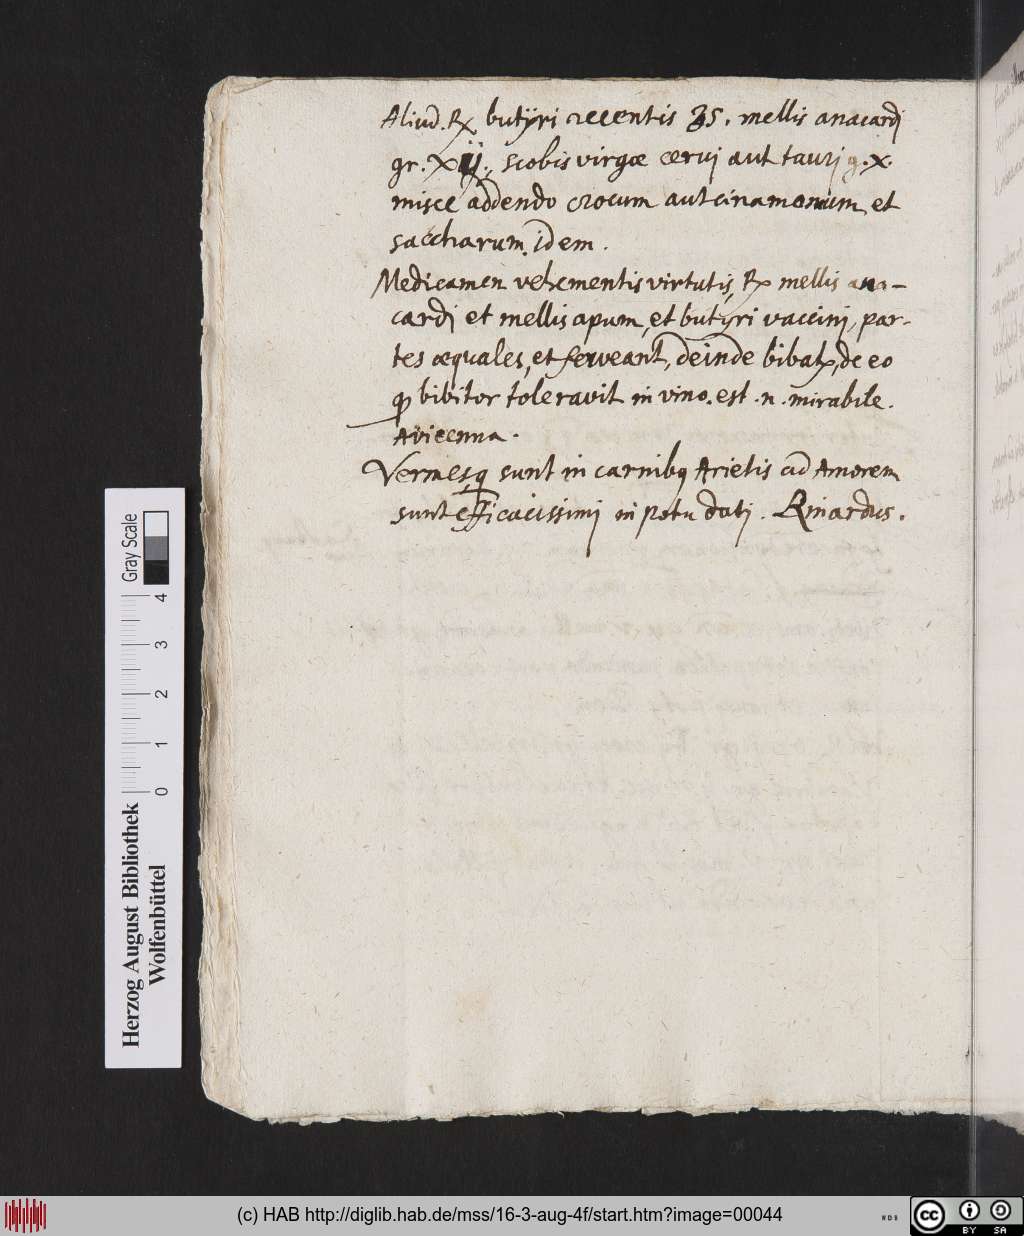 Aliud. ℞ butÿri recentis ʒs. mellis anacardj
gr. Xij., scobis virgæ cervj aut taurj g. x.
misce addendo crocum aut cinamomum, et
saccharum. idem.
Medicamen vehementis virtutis, ℞ mellis ana-
cardj et mellis apum, et butÿri vaccinj, par-
tes æquales, et ferveant, deinde bibatꝝ, de eo
ꝙ bibitor toleravit in vino. est .n. mirabile.
Avicenna.
Vermesꝗ sunt in carnibꝰ Arietis ad Amorem
sunt efficacissimj in potu datj.
Herzog August Bibliothek
Wolfenbüttel
0 1 2 3 4
Gray Scale
(c) HAB http://diglib.hab.de/mss/16-3-aug-4f/start.htm?image=00044
cc BY SA